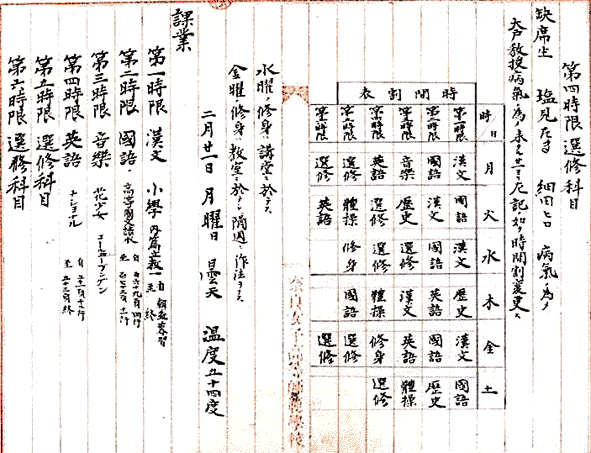 第四時限 選修科目
缺席生 塩見たき 細田ヒロ 病氣ノ為ノ
大戸教授病氣ノ為ノ来ル廿一
左記ノ如ク時間割変更ス
表割間時
時/日 月 火 水 木 金 土
第一時限 漢文 國語 漢文 歴史 漢文 國語
第二時限 國語 漢文 國語 英語 國語 歴史
第三時限 音樂 歴史 選修 漢文 英語 體操
第四時限 英語 選修 選修 體操 修身 選修
第五時限 選修 體操 修身 國語 選修
第六時限 選修 英語 選修
水曜ノ修身ハ講堂ニ於テス
金曜ノ修身ハ教室ニ於テシ隔週ニ作法ヲス
二月廿一日 月曜日 曇天 温度五十四度
課業
第一時限 漢文 小學 内篇立教
第二時限 國語 高等國文讀本
第三時限 音樂 花少女 ゴールデンブーゲン
第四時限 英語 ナショナル
第五時限 選修科目
第六時限 選修科目